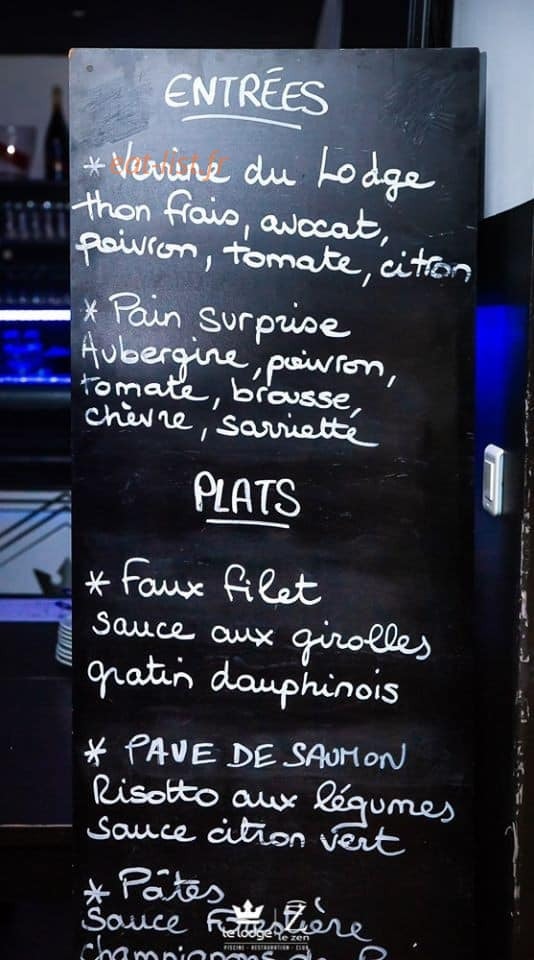 ENTRÉES
* Verrine du Lodge
eat-list.fr
thon frais, avocat,
poivron, tomate, citron
* Pain surprise
Aubergine, poivron,
tomate, brousse,
chèvre, sarriette
PLATS
* Faux filet
sauce aux girolles
gratin dauphinois
* PAVE DE SAUMON
Risotto aux légumes
sauce citron vert
* Pâtes
Sauce Forestière
champignons de
le lodge
le zen
PISCINE - RESTAURATION - CLUB